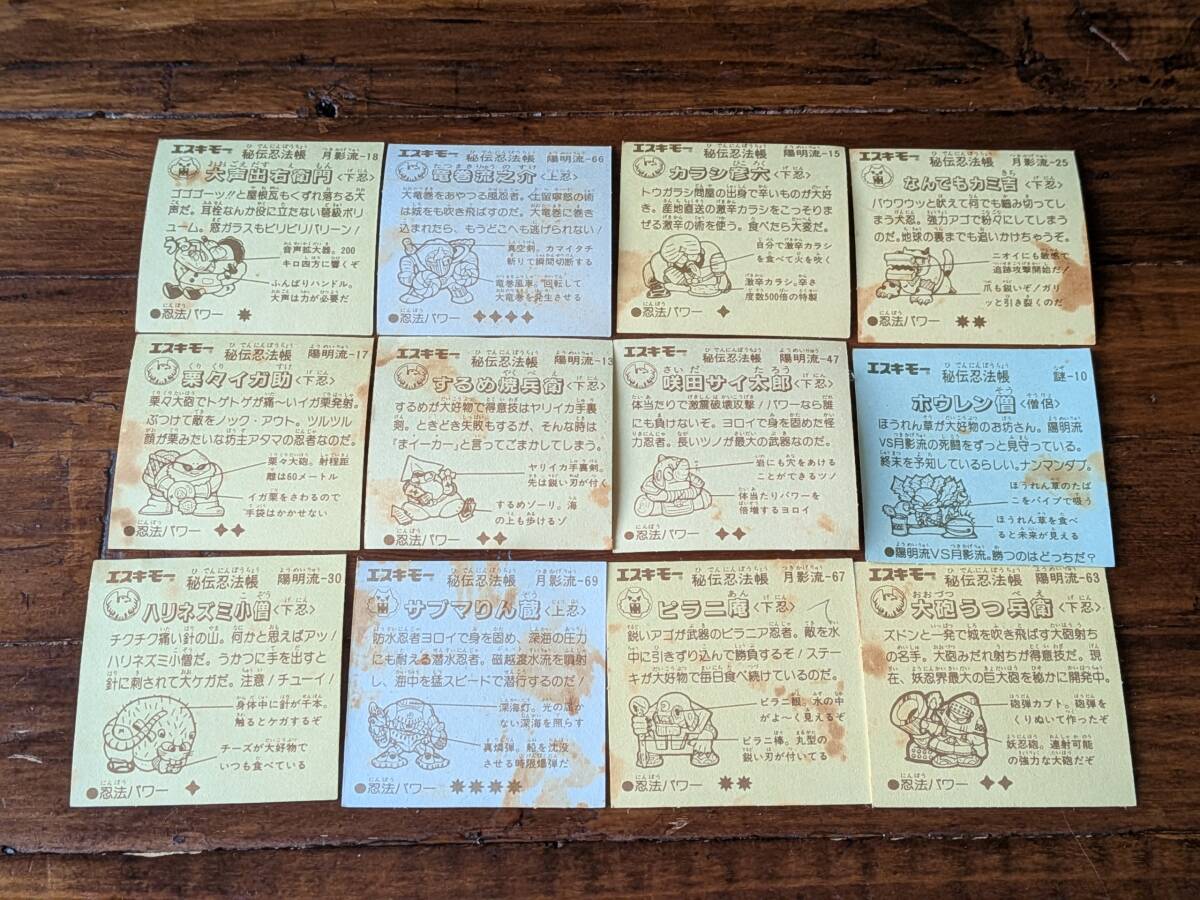 エスキモー
秘伝忍法帳 月影流-18
大声出右衛門〈下忍〉
ゴゴゴーッ!!と屋根瓦もくずれ落ちる大
声だ。耳栓なんか役に立たない超級ボリ
ューム。窓ガラスもビリビリバリーン!
音声拡大器。200
キロ四方に響くぞ
ふんばりハンドル。
大声は力が必要だ
●忍法パワー
エスキモー
秘伝忍法帳 陽明流-66
竜巻流之介〈上忍〉
大竜巻をあやつる風忍者。土留寧怒の術
は城をも吹き飛ばすのだ。大竜巻に巻き
込まれたら、もうどこへも逃げられない!
真空剣。カマイタチ
斬りで瞬間切断する
竜巻風車。回転して
大竜巻を発生させる
●忍法パワー
エスキモー
秘伝忍法帳 陽明流-15
カラシ彦六〈下忍〉
トウガラシ問屋の出身で辛いものが大好
き。産地直送の激辛カラシをこっそりま
ぜる激辛の術を使う。食べたら大変だ。
自分で激辛カラシ
を食べて火を吹く
激辛カラシ。辛さ
度数500倍の特製
●忍法パワー
エスキモー
秘伝忍法帳 月影流-25
なんでもカミ吉〈下忍〉
バウワウッと吠えて何でも噛み切ってし
まう犬忍。強力アゴで粉々にしてしまう
のだ。地球の裏までも追いかけちゃうぞ。
ニオイにも敏感で
追跡攻撃開始だ!
爪も鋭いぞ!ガリ
ッと引き裂くのだ
●忍法パワー
エスキモー
秘伝忍法帳 陽明流-17
栗々イガ助〈下忍〉
栗々大砲でトゲトゲが痛〜いイガ栗発射。
ぶつけて敵をノック・アウト。ツルツル
顔が栗みたいな坊主アタマの忍者なのだ。
栗々大砲。射程距
離は60メートル
イガ栗をさわるので
手袋はかかせない
●忍法パワー
エスキモー
秘伝忍法帳 陽明流-13
するめ焼兵衛〈下忍〉
するめが大好物で得意技はヤリイカ手裏
剣。ときどき失敗もするが、そんな時は
「まイーカー」と言ってごまかしてしまう。
ヤリイカ手裏剣。
先は鋭い刃が付く
するめゾーリ。海
の上も歩けるゾ
●忍法パワー
エスキモー
秘伝忍法帳 陽明流-47
咲田サイ太郎〈下忍〉
体当たりで激震破壊攻撃!パワーなら誰
にも負けないぞ。ヨロイで身を固めた怪
力忍者。長いツノが最大の武器なのだ。
岩にも穴をあける
ことができるツノ
体当たりパワーを
倍増するヨロイ
●忍法パワー
エスキモー
秘伝忍法帳 謎-10
ホウレン僧〈僧侶〉
ほうれん草が大好物のお坊さん。陽明流
VS月影流の死闘をずっと見守っている。
終末を予知しているらしい。ナンマンダブ。
ほうれん草のたば
こをパイプで吸う
ほうれん草を食べ
ると未来が見える
●陽明流VS月影流。勝つのはどっちだ?
エスキモー
秘伝忍法帳 陽明流-30
ハリネズミ小僧〈下忍〉
チクチク痛い針の山。何かと思えばアッ!
ハリネズミ小僧だ。うかつに手を出すと
針に刺されて大ケガだ。注意!チューイ!
身体中に針が千本。
触るとケガするぞ
チーズが大好物で
いつも食べている
●忍法パワー
エスキモー
秘伝忍法帳 月影流-69
サブマりん蔵〈上忍〉
防水忍者ヨロイで身を固め、深海の圧力
にも耐える潜水忍者。磁越渡水流を噴射
し、海中を猛スピードで潜行するのだ!
深海灯。光の届か
ない深海を照らす
真燐弾。船を沈没
させる時限爆弾だ
●忍法パワー
エスキモー
秘伝忍法帳 月影流-67
ピラニ庵〈下忍〉
鋭いアゴが武器のピラニア忍者。敵を水
中に引きずり込んで勝負するぞ!ステー
キが大好物で毎日食べ続けているのだ。
ピラニ眼。水の中
がよ〜く見えるぞ
ピラニ棒。丸型の
鋭い刃が付いてる
●忍法パワー
エスキモー
秘伝忍法帳 陽明流-63
大砲うつ兵衛〈下忍〉
ズドンと一発で城を吹き飛ばす大砲射ち
の名手。大砲みだれ射ちが得意技だ。現
在、妖忍界最大の巨大砲を秘かに開発中。
砲弾カブト。砲弾を
くりぬいて作ったぞ
妖忍砲。連射可能
の強力な大砲だぞ
●忍法パワー